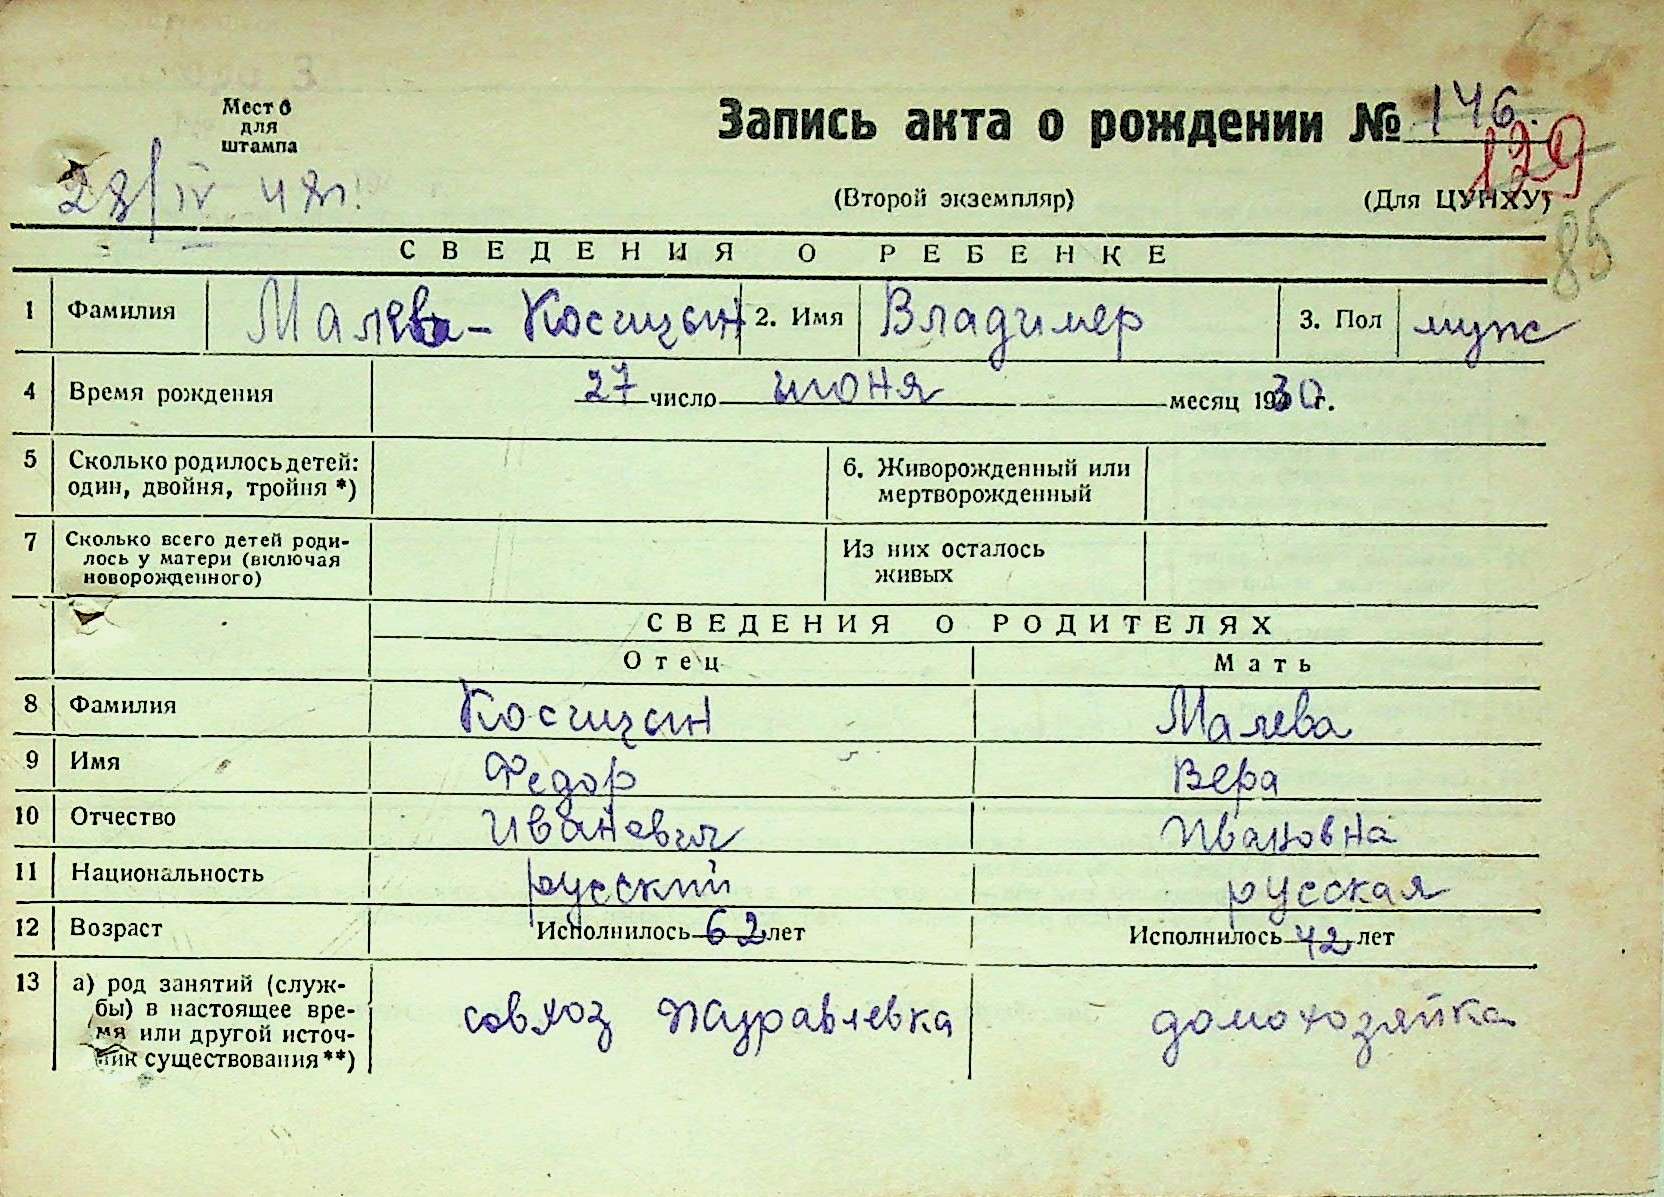 Место
для
штампа
28/IV 42г.
Запись акта о рождении № 146.
129
(Второй экземпляр) (Для ЦУНХУ)
85
СВЕДЕНИЯ О РЕБЕНКЕ
1 Фамилия Малева-Косицын 2. Имя Владимер 3. Пол муж
4 Время рождения 27 число июня месяц 1930 г.
5 Сколько родилось детей: один, двойня, тройня *) 6. Живорожденный или мертворожденный
7 Сколько всего детей роди-
лось у матери (включая
новорожденного) Из них осталось живых
СВЕДЕНИЯ О РОДИТЕЛЯХ
Отец Мать
8 Фамилия Косицын Малева
9 Имя Федор Вера
10 Отчество Иванович Ивановна
11 Национальность русский русская
12 Возраст Исполнилось 62 лет Исполнилось 42 лет
13 а) род занятий (служ-
бы) в настоящее вре-
мя или другой источ-
ник существования **) совхоз Журавлевка домохозяйка